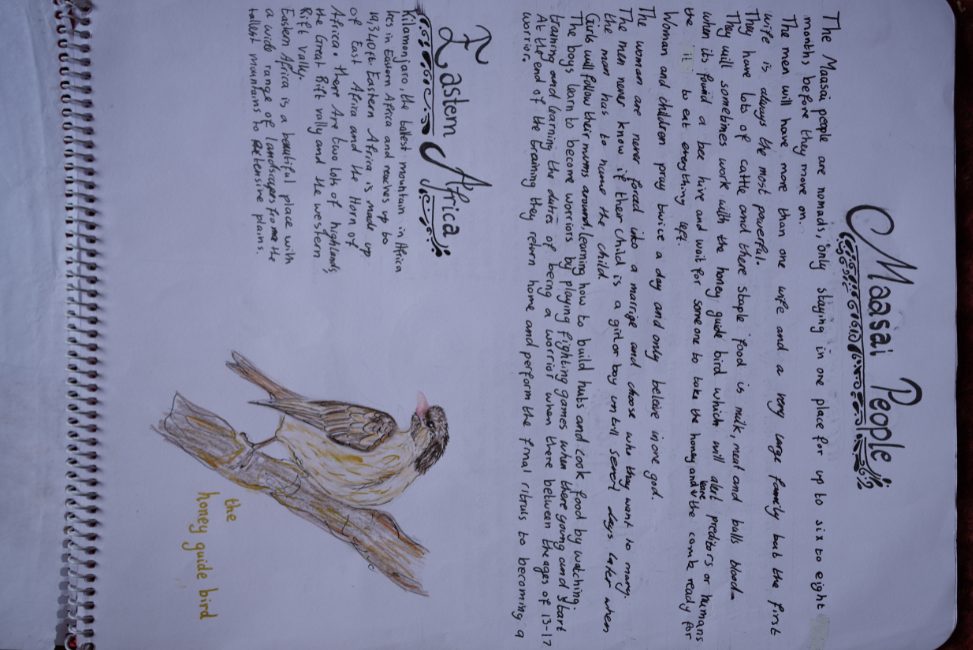 Maasai People
The Maasai people are nomads, only staying in one place for up to six to eight
months before they move on.
The men will have more than one wife and a very large family but the first
wife is always the most powerful.
They have lots of cattle and there staple food is milk, meat and bulls blood.
They will sometimes work with the honey guide bird which will alert preditors or humans
when its found a bee hive and wait for someone to take the honey and leave the comb ready for
the to eat enything left.
Woman and children pray twice a day and only beleive in one god.
The woman are never forced into a marrige and choose who they want to marry.
The men never know if their child is a girl or boy untill seven days later when
the man has to name the child.
Girls will follow their mums around, learning how to build huts and cook food by watching.
The boys learn to become worriors by playing fighting games when there young and start
training and learning the duites of being a worrior when there between the ages of 13-17
At the end of the training they return home and perform the final ritruls to becoming a
worrior.
Eastern Africa
Kilamonjaro, the tallest mountain in Africa
lies in Eastern Africa and reaches up to
19,340ft. Eastern Africa is made up
of East Africa and the Horn of
Africa. Ther Are two lots of highlands,
the Great Rift vally and the western
Rift vally.
Eastern Africa is a beautiful place with
a wide range of landscapes from the
tallest mountains to extensine plains.
the
honey guide bird